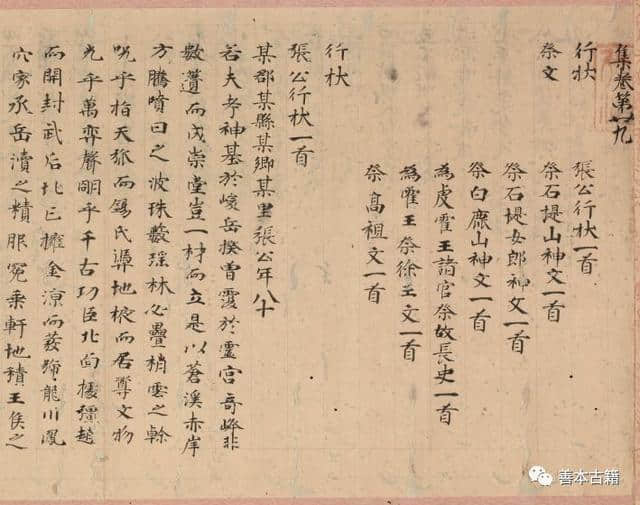 集卷第廿九
行狀 張公行狀一首
祭文 祭石堤山神文一首
祭石堤女郎神文一首
祭白鹿山神文一首
為虔霍王諸官祭故長史一首
為霍王祭徐王文一首
祭高祖文一首
行狀
張公行狀一首
某郡某縣某鄉某里張公年八十
若夫考神基於峻岳揆曾覆於靈宮奇峰非
數而成崇堂豈一材而立是以蒼溪赤岸
方騰噴日之波珠藪瑤林必疊梢雲之幹
乎指天而錫氏地而居尊文物
光乎萬聲明乎千古功臣北面疆趙
而開封武后北擁金涼而發跡龍川鳳
穴家承岳瀆之精服冕乘軒地積王侯之
善本古籍